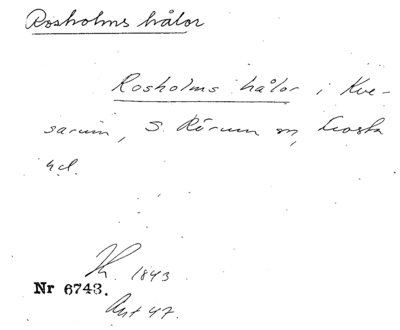 Rosholms hålor
Rosholms hålor i Kve-
sarum, S. Rörum sn, Frosta
hd.
1843
Nr 6743.
Ant 47.